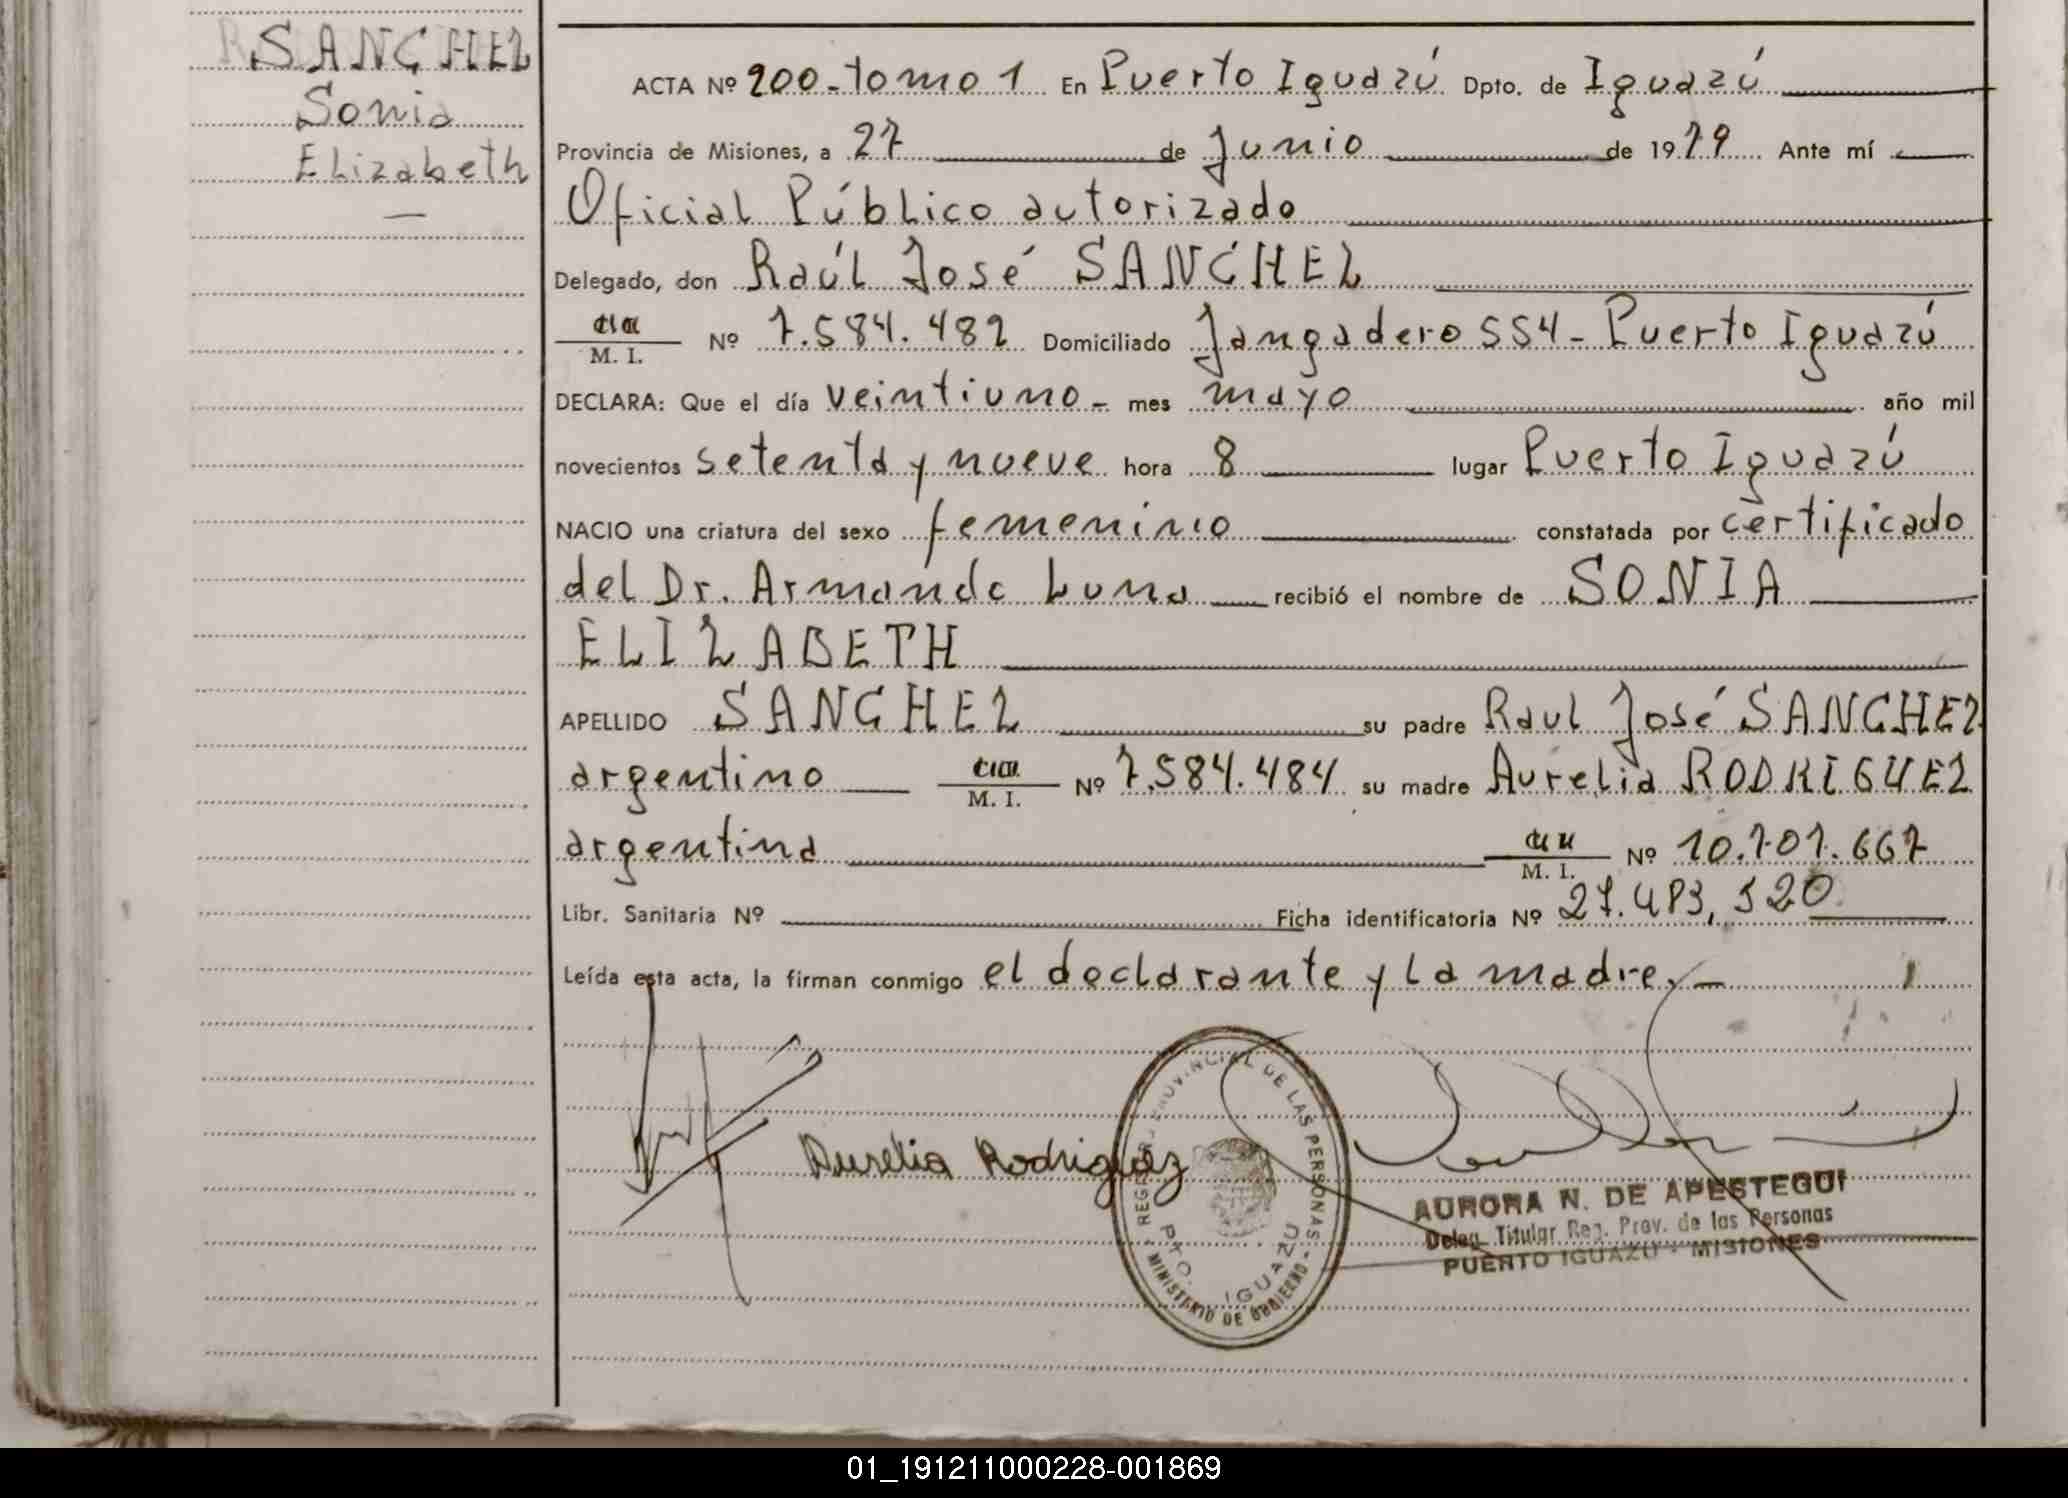 SANCHEZ
Sonia
Elizabeth
ACTA Nº 200-tomo 1 En Puerto Iguazú Dpto. de Iguazú
Provincia de Misiones, a 27 de Junio de 1979 Ante mí
Oficial Público autorizado
Delegado, don Raúl José SANCHEZ
M. I. Nº 7.584.482 Domiciliado Jangadero 554 - Puerto Iguazú
DECLARA: Que el día veintiuno - mes mayo año mil
novecientos setenta y nueve hora 8 lugar Puerto Iguazú
NACIO una criatura del sexo femenino constatada por certificado
del Dr. Armando Luna recibió el nombre de SONIA
ELIZABETH
APELLIDO SANCHEZ su padre Raul José SANCHEZ
argentino M. I. Nº 7.584.484 su madre Aurelia RODRIGUEZ
argentina M. I. Nº 10.701.667
Libr. Sanitaria Nº Ficha identificatoria Nº 27.483.520
Leída esta acta, la firman conmigo el declarante y la madre.-
Aurelia Rodriguez
REGISTRO PROVINCIAL DE LAS PERSONAS
PTO. IGUAZU
MINISTERIO DE GOBIERNO
AURORA N. DE APESTEGUI
Deleg. Titular Reg. Prov. de las Personas
PUERTO IGUAZU - MISIONES
01_191211000228-001869